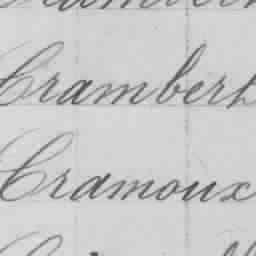 Crambert
Cramoux